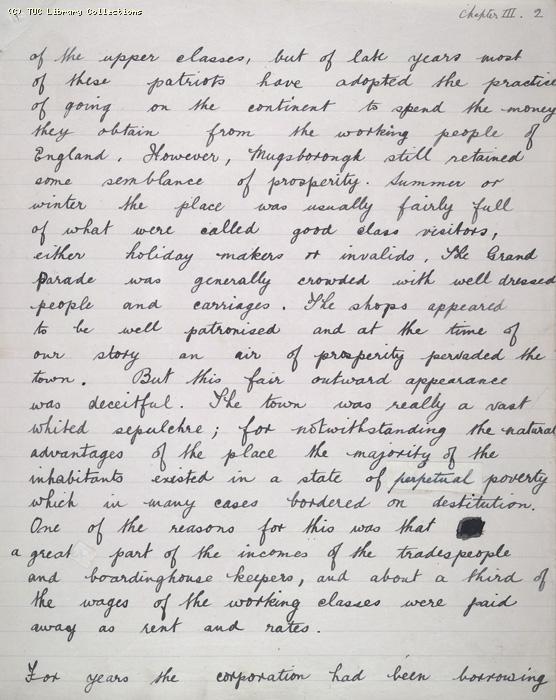 (C) TUC Library Collections
Chapter III. 2
of the upper classes, but of late years most
of these patriots have adopted the practice
of going on the continent to spend the money
they obtain from the working people of
England. However, Mugsborough still retained
some semblance of prosperity. Summer or
winter the place was usually fairly full
of what were called good class visitors,
either holiday makers or invalids. The Grand
Parade was generally crowded with well dressed
people and carriages. The shops appeared
to be well patronised and at the time of
our story an air of prosperity pervaded the
town. But this fair outward appearance
was deceitful. The town was really a vast
whited sepulchre; for notwithstanding the natural
advantages of the place the majority of the
inhabitants existed in a state of perpetual poverty
which in many cases bordered on destitution.
One of the reasons for this was that
a great part of the incomes of the tradespeople
and boardinghouse keepers, and about a third of
the wages of the working classes were paid
away as rent and rates.
For years the corporation had been borrowing